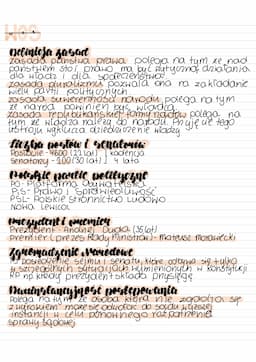 WOS
Definicja zasad
zasada państwa prawa polega na tym że nad
państwem stoi prawo ma być wytyczną działania
dla władz i dla społeczeństwa
zasada pluralizmu pozwala ona na zakładanie
wielu partii politycznych
zasada suwerenności narodu polega na tym
że naród powinien być władzą
zasada republikańskiej formy rządów polega na
tym że władza należy do narodu. Przyjęcie tego
ustroju wyklucza dziedziczenie władzy
Liczba posłów i senatorów
Posłowie - 460 (21 lat) kadencja
Senatorzy - 100 (30 lat) 4 lata
Polskie partie polityczne
PO - Platforma Obywatelska
PiS - Prawo i Sprawiedliwość
PSL - Polskie Stronnictwo Ludowo
Nowa Lewica
Prezydent i premier
Prezydent - Andrzej Duda (35 lat)
Premier (prezes Rady Ministrów) - Mateusz Morawiecki
Zgromadzenie Narodowe
posiedzenie sejmu i senatu które odbywa się tylko
w szczególnych sytuacjach wymienionych w konstytucji
np. kiedy prezydent składa przysięgę
Dwuinstancyjność postępowania
Polega na tym że osoba która nie zgadza się
z wyrokiem może się odwołać do sądu wyższej
instancji w celu ponownego rozpatrzenia
sprawy sądowej